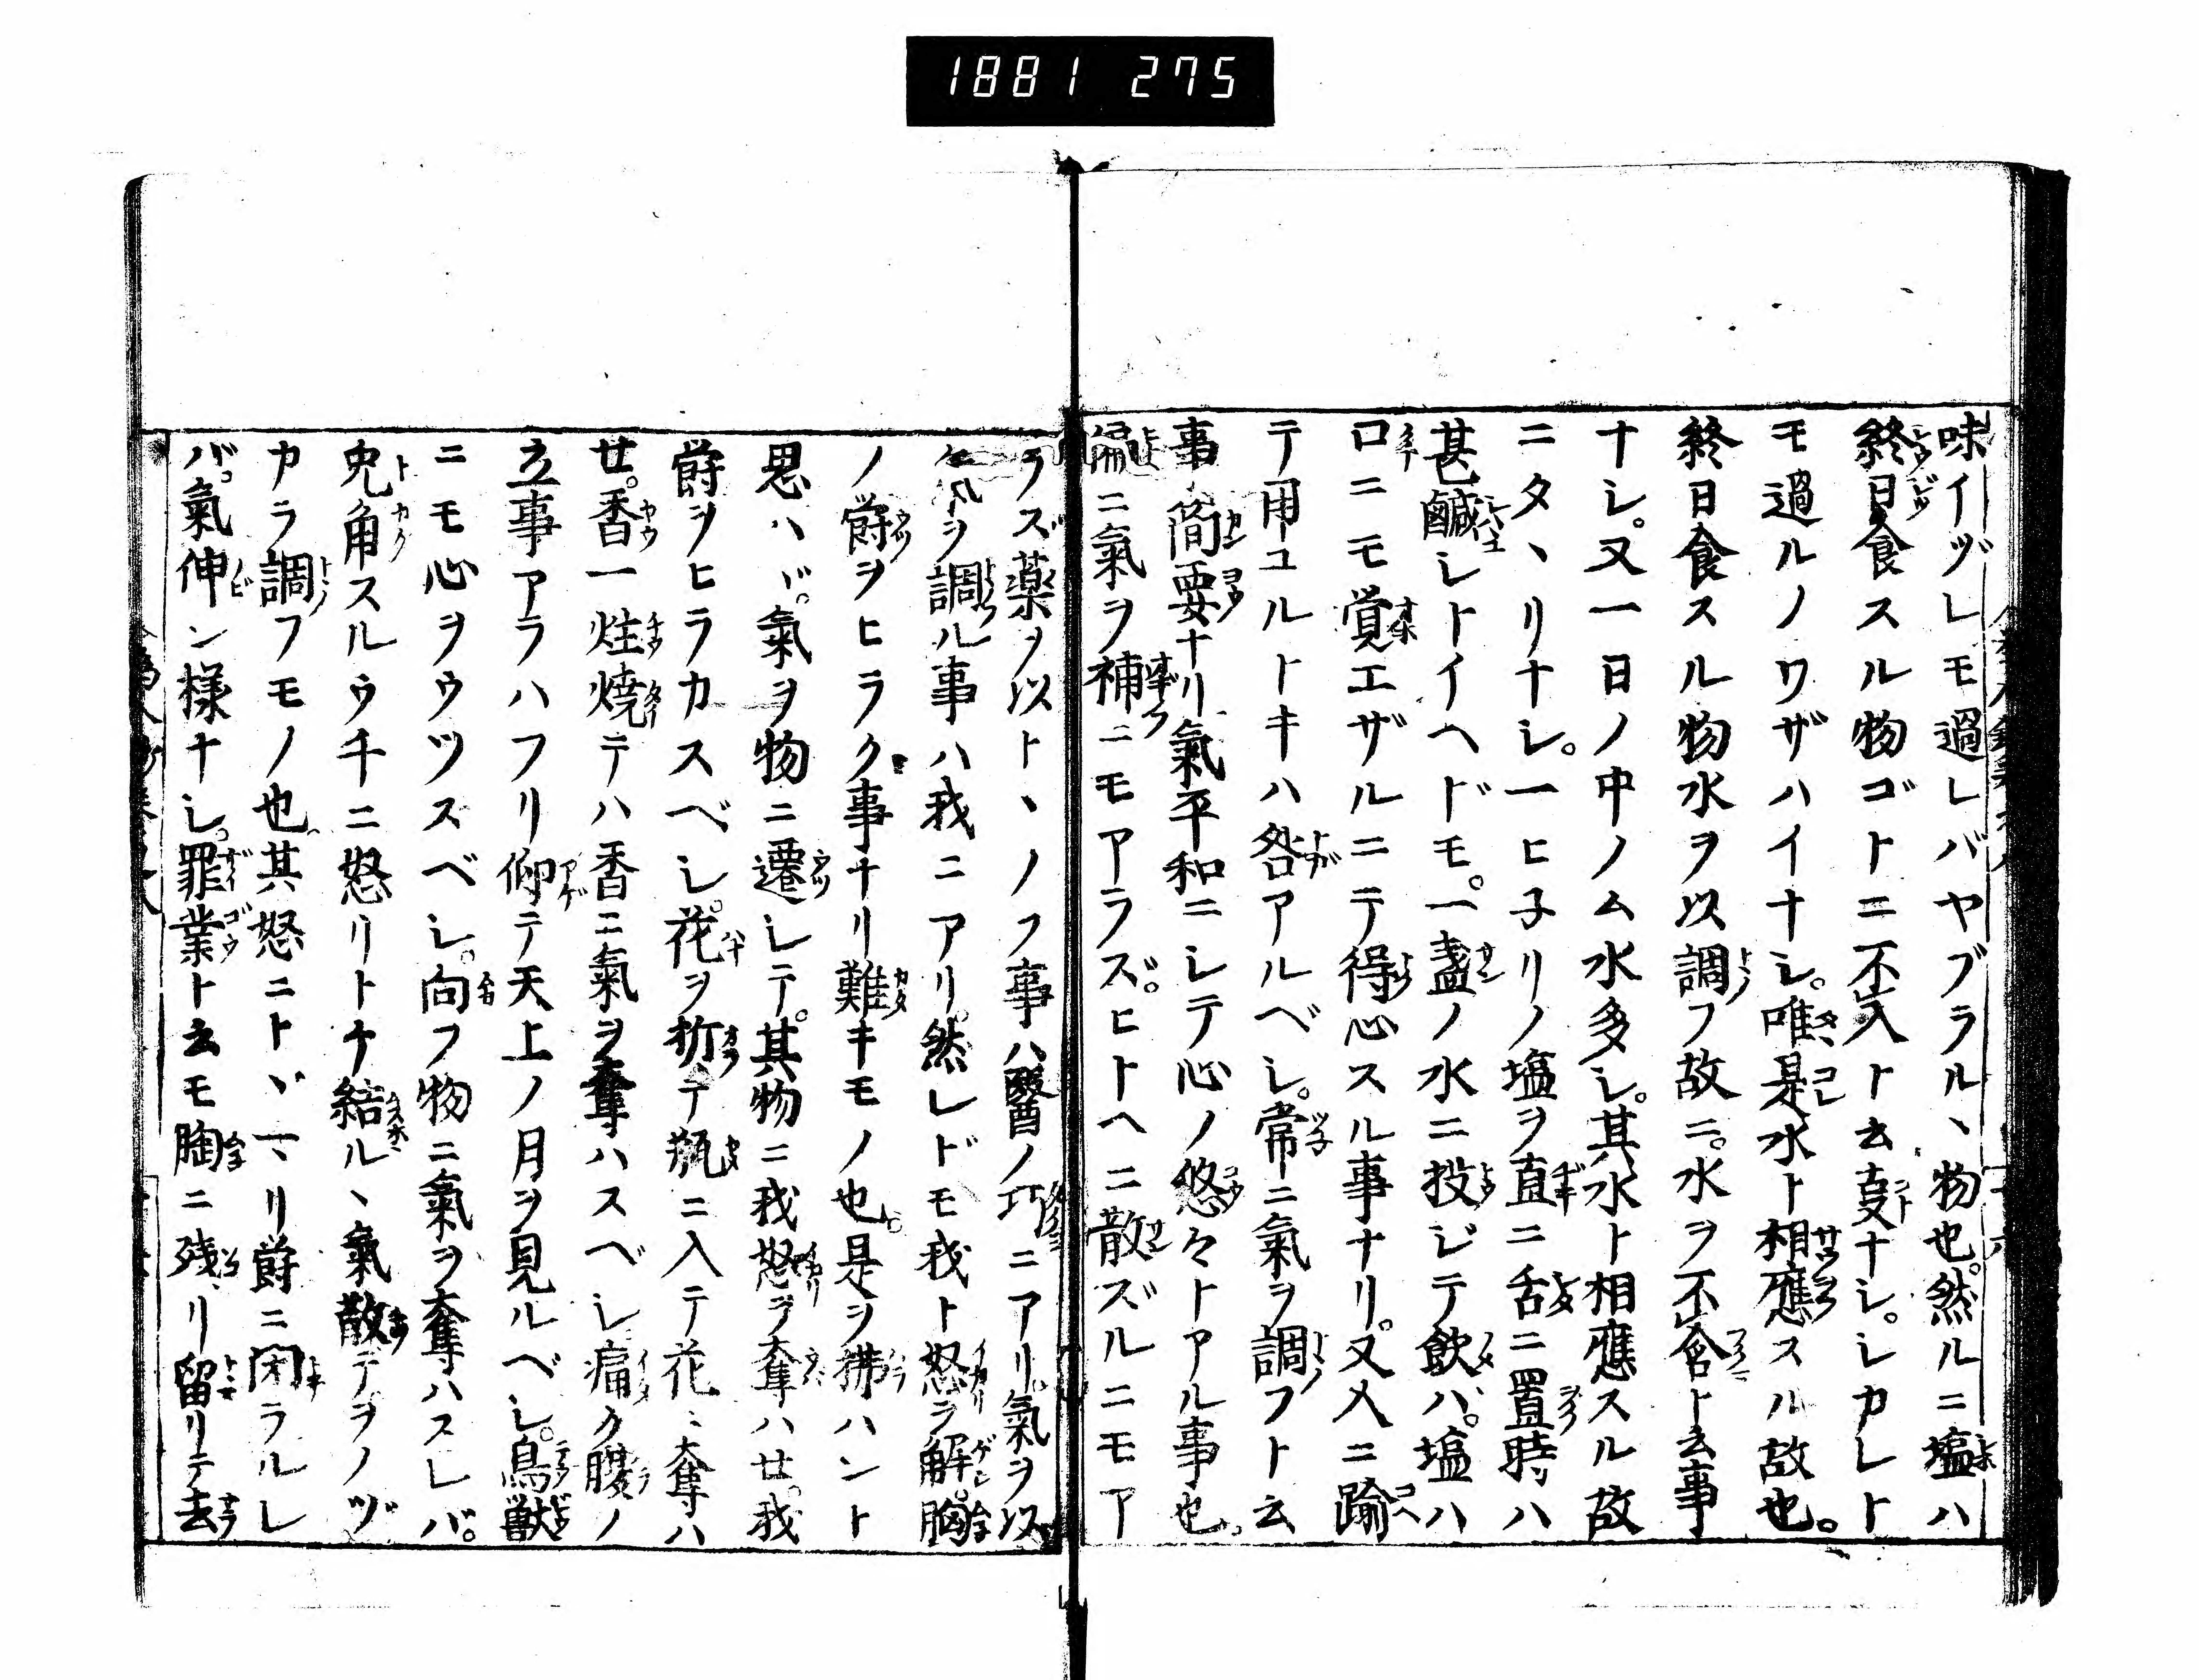 1881 275
味イヅレモ過レバヤブラル丶物也。然ルニ塩ハ
終日食スル物ゴトニ不入ト云叓ナシ。シカレト
モ過ルノワザハイナシ。唯是水ト相應スル故也。
終日食スル物水ヲ以調フ故ニ。水ヲ不含ト云事
ナシ。又一日ノ中ノム水多シ。其水ト相應スル故
ニタ丶リナシ。一ヒ子リノ塩ヲ直ニ舌ニ置時ハ
甚鹹シトイヘドモ。一盞ノ水ニ投ジテ飲バ。塩ハ
口ニモ覚エザルニテ得心スル事ナリ。又人ニ踰
テ用ユルトキハ咎アルベシ。常ニ氣ヲ調フト云
事簡要ナリ氣平和ニシテ心ノ悠々トアル事也
偏ニ氣ヲ補ニモアラズ。ヒトヘニ散ズルニモア
ラズ薬ヲ以ト丶ノフ事ハ醫ノ巧ニアリ。氣ヲ以
氣ヲ調ル事ハ我ニアリ。然レドモ我ト怒ヲ解。胸
ノ欝ヲヒラク事ナリ難キモノ也。是ヲ拂ハント
思ハヾ。氣ヲ物ニ遷シテ。其物ニ我怒ヲ奪ハセ。我
欝ヲヒラカスベシ。花ヲ折テ瓶ニ入テ花ニ奪ハ
セ。香一炷焼テハ香ニ氣ヲ奪ハスベシ痛ク腹ノ
立事アラハフリ仰テ天上ノ月ヲ見ルベシ。鳥獣
ニモ心ヲウツスベシ。向フ物ニ氣ヲ奪ハスレバ。
兎角スルウチニ怒リトケ結ル丶氣散テヲノヅ
カラ調フモノ也。其怒ニトヾマリ欝ニ閉ラルレ
バ。氣伸ン様ナシ。罪業ト云モ胸ニ残リ留リテ去